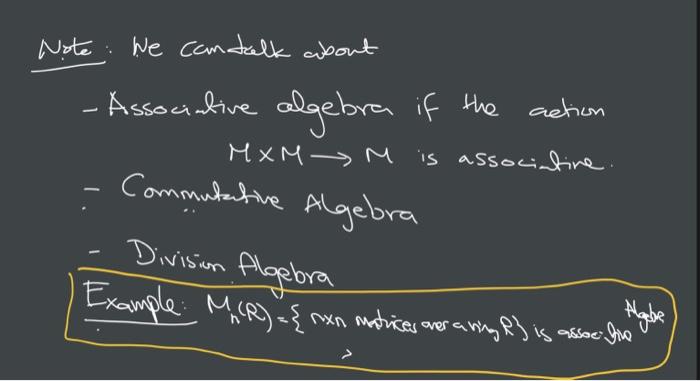 Note: We can talk about
- Associative algebra if the action
M × M → M is associative.
- Commutative Algebra
- Division Algebra
Example: Mn(R) = { n×n matrices over a ring R } is associative Algebra